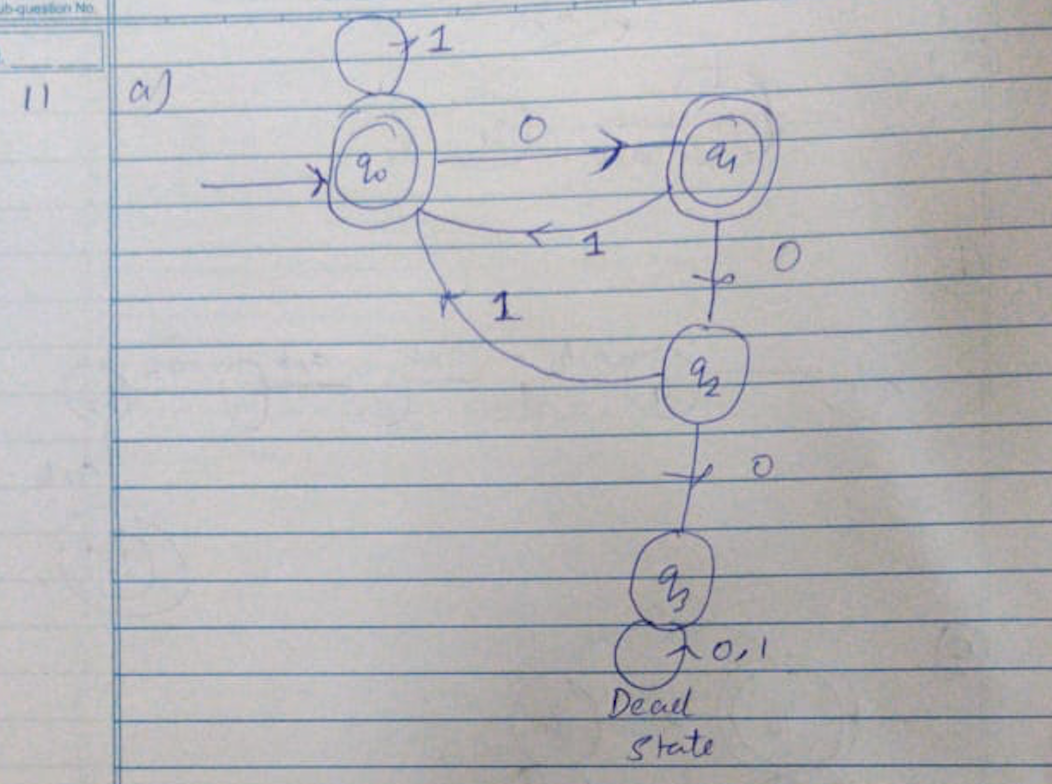 ub-question No.
11 a)
1
q0 0 q1
1
0
1
q2
0
q3
0,1
Dead
State